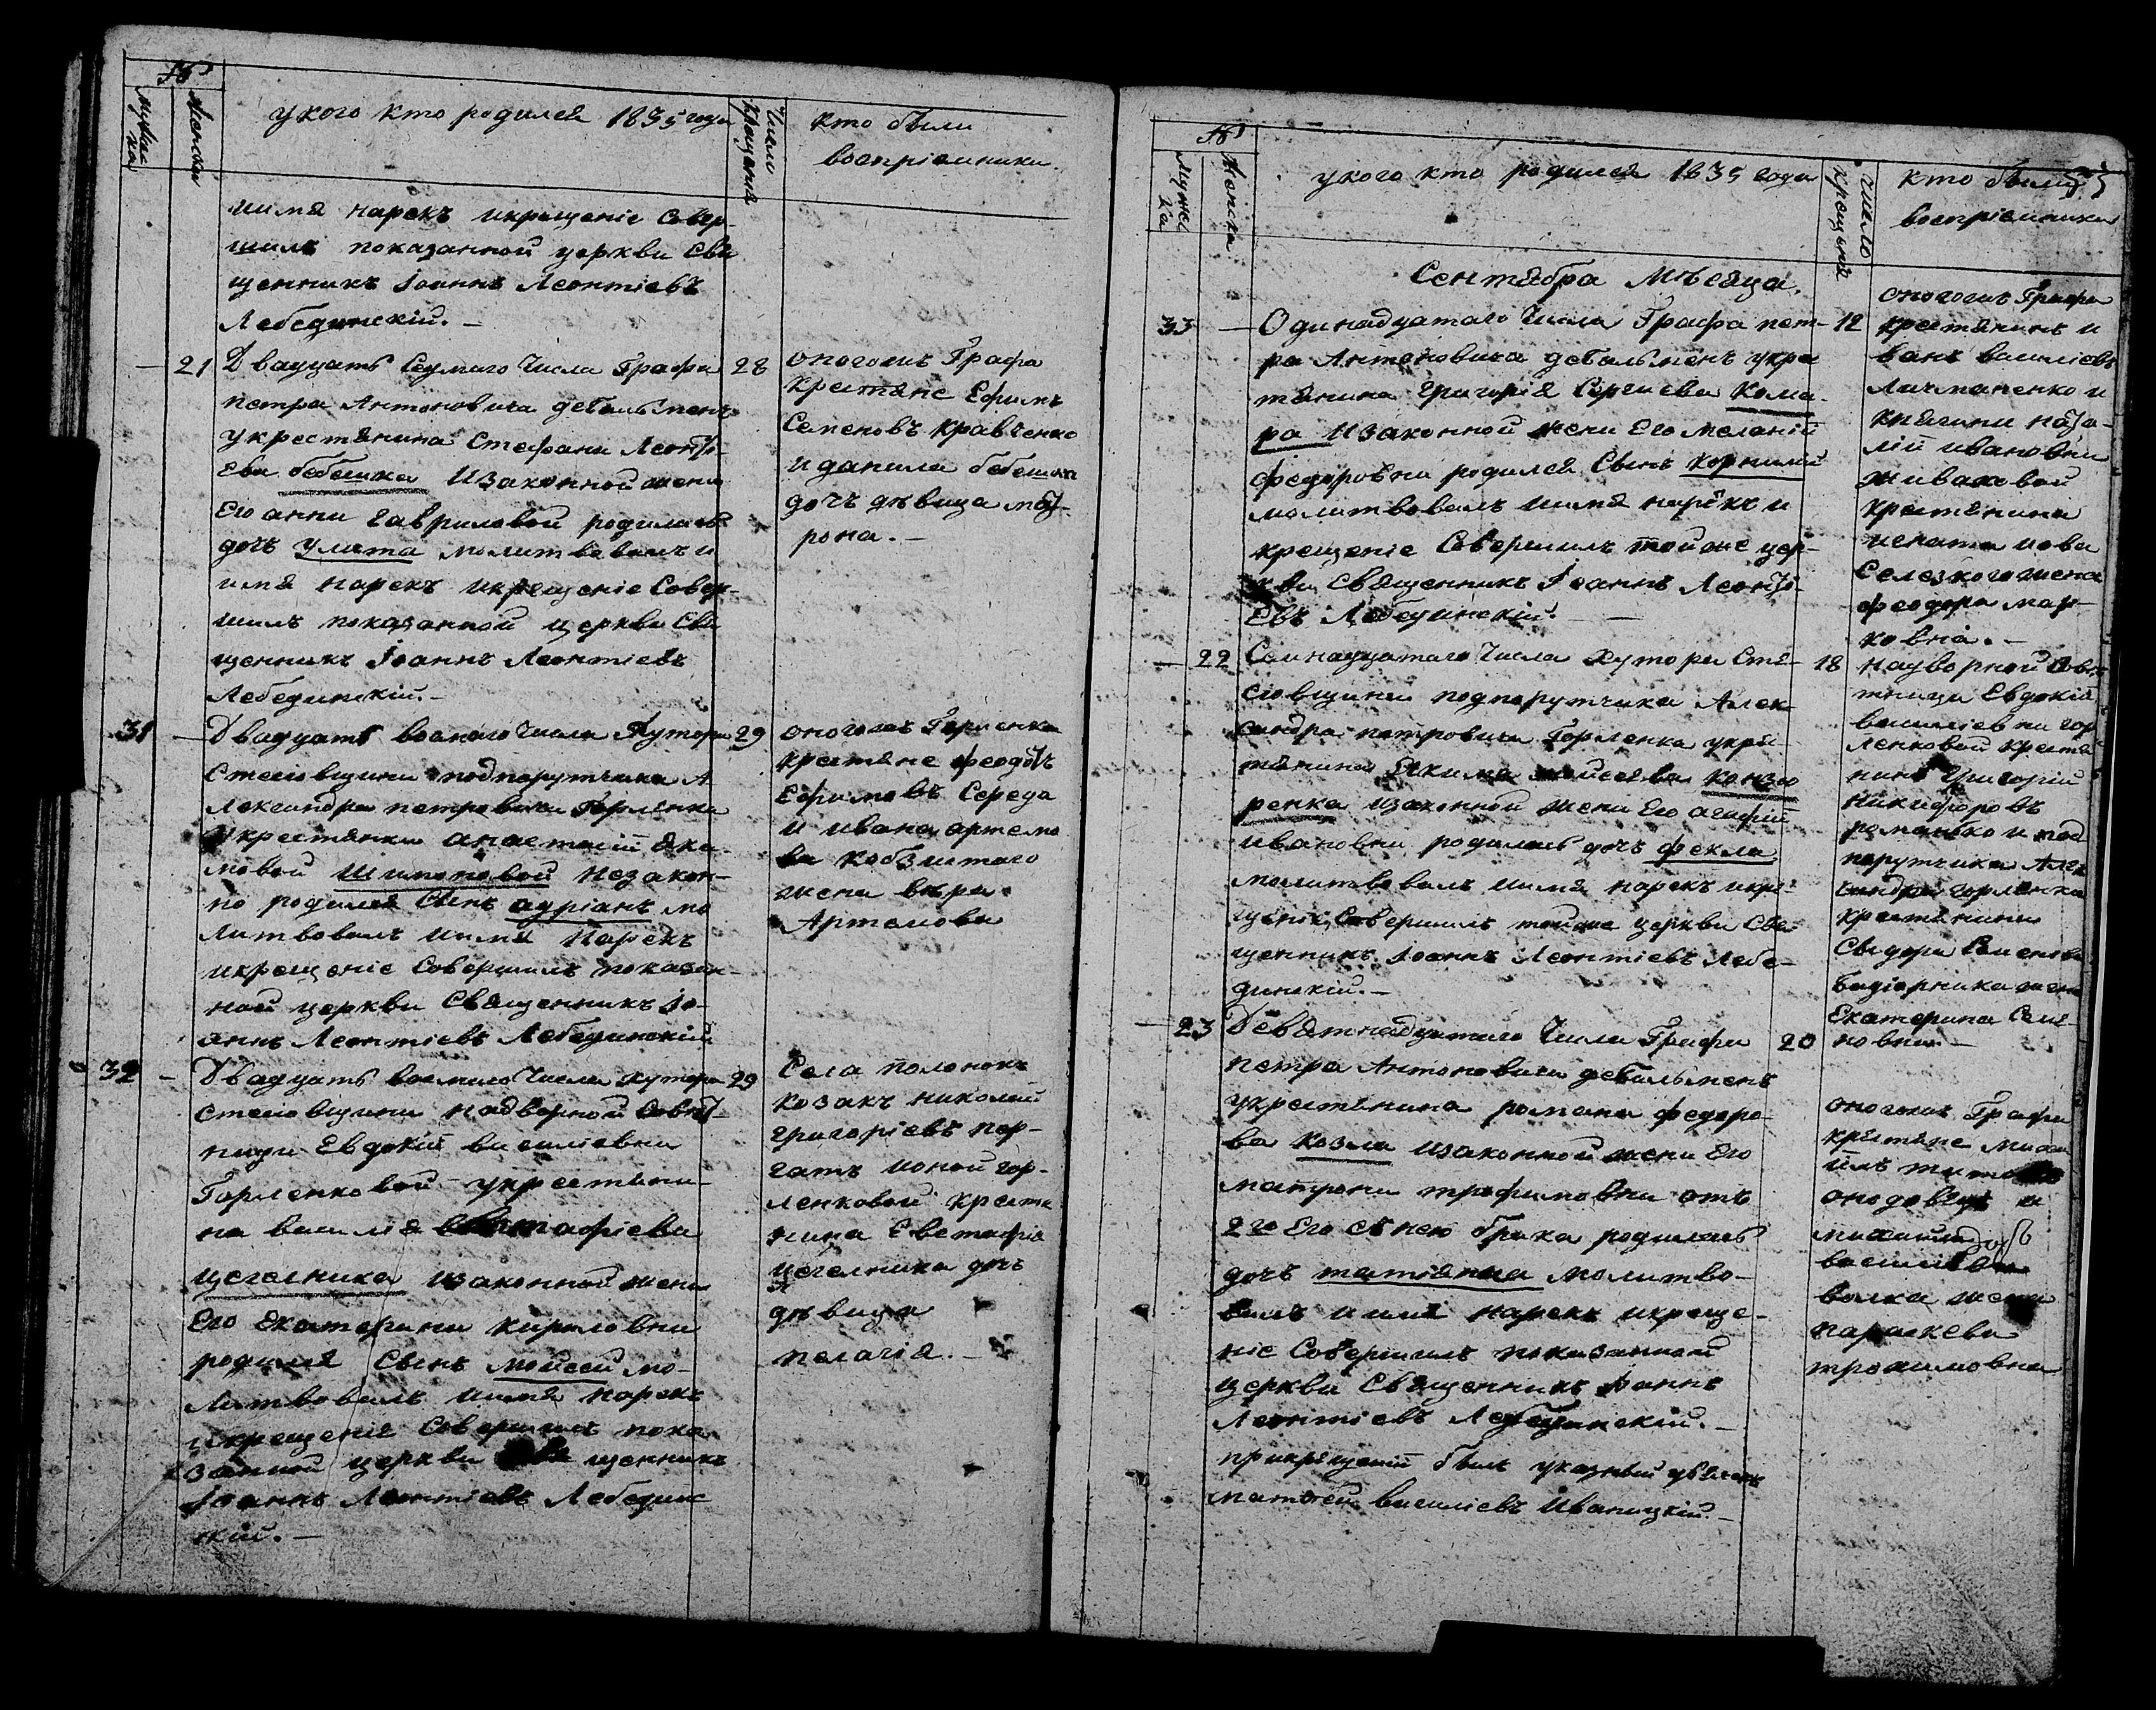 №
мужеска
женска
у кого кто родился 1835 года
Число крещения
кто были
восприемники
иимя нарекъ икрещеніе Совер-
шилъ показанной церкви Свя
щенникъ Іоаннъ Леонтіевъ
Лебединскій. —
— 21 Двадцать Седмаго Числа Графа 28
петра Антоновича дебальменъ
укрестянина Стефана Леонтіева
бебешка Изаконной жени
Его анни гавриловой родилась
дочъ Улита молитвовалъ и
имя нарекъ икрещеніе Совер-
шилъ показанной церкви Свя
щенникъ Іоаннъ Леонтіевъ
Лебединскій. —
оногожъ Графа
крестяне Ефимъ
Семеновъ Кравченко
и данила бебешки
дочъ дѣвица мот-
рона. —
31 — Двадцать восмаго Числа Хутора 29
Стеговщини подпорутчика А
лександра петровича Горленка
укрестянки анастасіи яки-
мовой Шимоновой незакон-
но родился Сынъ адріанъ мо
литвовалъ иимя нарекъ
икрещеніе Совершилъ показан-
ной церкви Священникъ Іо-
аннъ Леонтіевъ Лебединскій
оногожъ Горленка
крестяне феодотъ
Ефимовъ Середа
и ивана артемо
ва кобзистаго
жена вѣра
Артемова
32 — Двадцать восмаго Числа хутора 29
стеговщини надворной Совѣт-
ници Евдокіи василіевни
Горленковой укрестяни-
на василія Евстафіева
цегелника изаконной жени
Его Екатерини кириловни
родился Сынъ моисей мо-
литвовалъ иимя нарекъ
икрещеніе Совершилъ пока
занной церкви Свя щенникъ
Іоаннъ Леонтіевъ Лебединс
кій. —
Села полонокъ
козакъ николай
григоріевъ пер-
гатъ ионой гор-
ленковой крестя
нина Евстафія
цегелника дочъ
дѣвица
пелагія. —
№
Мужеска
Женска
у кого кто родился 1835 года
число крещения
кто были
восприемники
Сентября Мѣсяца.
33 — Одинадцатаго Числа Графа пет- 12
ра Антоновича дебальменъ укре
тянина григорія Сергиева Кома-
ра Изаконной жени Его меланіи
федоровни родился Сынъ Корнилий
молитвовалъ иимя нарекъ и
крещеніе Совершилъ тойже цер-
кви Священникъ Іоаннъ Леонті-
Евъ Лебединскій. —
оногожъ Графа
крестянинъ и
ванъ василіевъ
Личманенко и
княгини ната-
ліи ивановни
живаховой
крестянина
игната иова
Селезкого жена
феодора мар-
ковна. —
— 22 Семнадцатаго Числа Хутора Стя- 18
говщини подпорутчика Алек-
сандра петровича Горленка укрес
тянина Якима моисеева
ренка изаконной жени Его агафіи
ивановни родилась дочъ фекла
молитвовалъ иимя нарекъ икре
щеніе Совершилъ тойже церкви Свя
щенникъ Іоаннъ Леонтіевъ Лебе-
динскій. —
надворной Совѣ
тници Евдокіи
василіевни гор
ленковой крестя
нинъ Григорій
никифоровъ
романько и под
порутчика Алек
сандра горленка
крестянина
Сидора Семенова
жена
Екатерина Семе
новна —
— 23 Девятнадцатаго Числа Графа 20
петра Антоновича дебальменъ
укрестянина романа федоро-
ва Козла изаконной жени Его
матрони трофимовни отъ
2го Его съ нею брака родилась
дочъ татіанна молитво-
валъ иимя нарекъ икреще-
ніе Совершилъ показанной
церкви Священникъ Іоаннъ
Леонтіевъ Лебединскій. —
прикрещеніи былъ указный дъячекъ
матвей василіевъ Иваницкій. —
оногожъ Графа
крестяне миха
илъ
и
михаила
волка жена
параскева
трохимовна